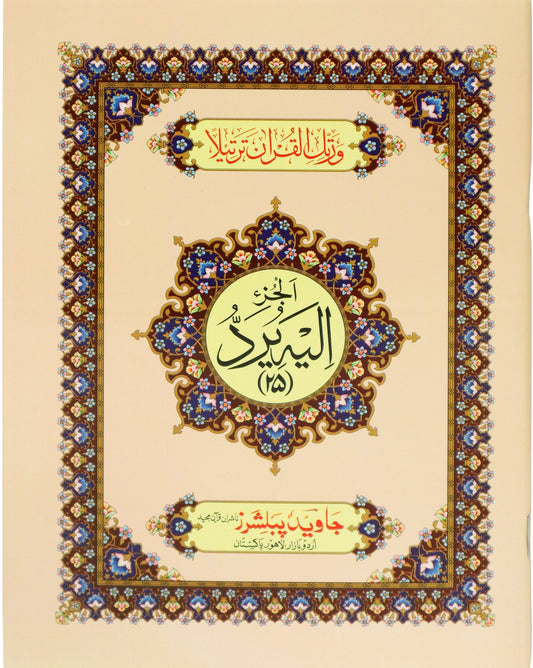 وَرَتِّلِ الْقُرْاٰنَ تَرْتِيْلًا
اَلْجُزْءُ
اِلَیْهِ یُرَدُّ
(۲۵)
جاوید پبلشرز ناشران قرآن مجید
اردو بازار لاهور پاکستان